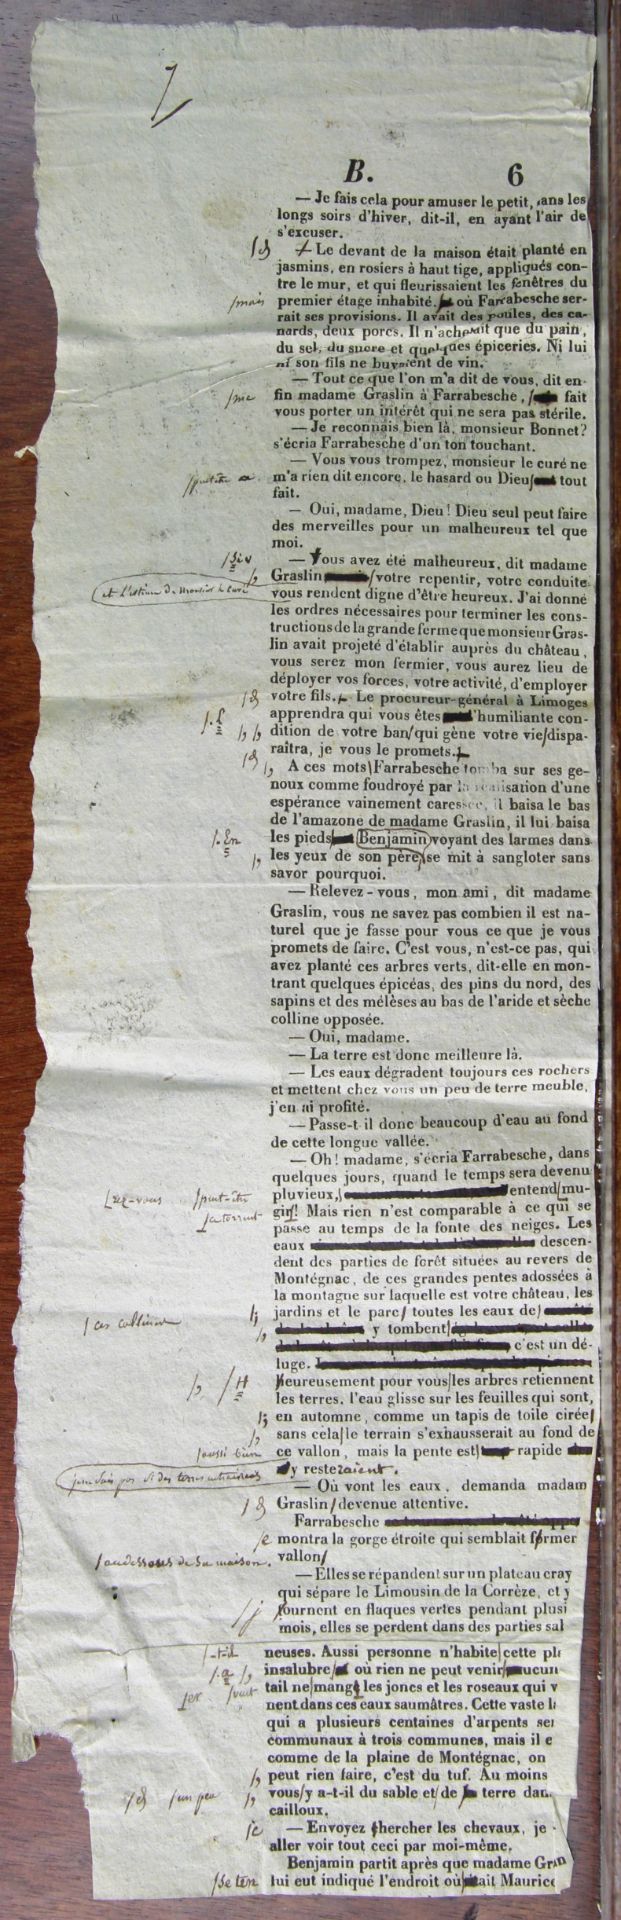 7
B. 6
— Je fais cela pour amuser le petit, dans les
longs soirs d'hiver, dit-il, en ayant l'air de
s'excuser.
Le devant de la maison était planté en
jasmins, en rosiers à haut tige, appliqués con-
tre le mur, et qui fleurissaient les fenêtres du
/mais
premier étage inhabité. où Farrabesche ser-
rait ses provisions. Il avait des poules, des ca-
nards, deux porcs. Il n'achetait que du pain,
du sel, du sucre et quelques épiceries. Ni lui
ni son fils ne buvaient de vin.
— Tout ce que l'on m'a dit de vous, dit en-
/me
fin madame Graslin à Farrabesche, fait
vous porter un intérêt qui ne sera pas stérile.
— Je reconnais bien là, monsieur Bonnet?
s'écria Farrabesche d'un ton touchant.
— Vous vous trompez, monsieur le curé ne
/peut-être a
m'a rien dit encore, le hasard ou Dieu/ tout
fait.
— Oui, madame, Dieu! Dieu seul peut faire
des merveilles pour un malheureux tel que
moi.
/Si v
— Vous avez été malheureux, dit madame
/,
Graslin /votre repentir, votre conduite
et l'estime de monsieur le curé
vous rendent digne d'être heureux. J'ai donné
les ordres nécessaires pour terminer les cons-
tructions de la grande ferme que monsieur Gras-
lin avait projeté d'établir auprès du château,
vous serez mon fermier, vous aurez lieu de
déployer vos forces, votre activité, d'employer
votre fils. Le procureur-général à Limoges
/. l
apprendra qui vous êtes l'humiliante con-
/, /,
dition de votre ban/qui gène votre vie/dispa-
raîtra, je vous le promets.
/,
A ces mots/Farrabesche tomba sur ses ge-
noux comme foudroyé par la réalisation d'une
espérance vainement caressée, il baisa le bas
de l'amazone de madame Graslin, il lui baisa
/. En
les pieds/ Benjamin voyant des larmes dans
/,
les yeux de son père/se mit à sangloter sans
savoir pourquoi.
— Relevez-vous, mon ami, dit madame
Graslin, vous ne savez pas combien il est na-
turel que je fasse pour vous ce que je vous
promets de faire. C'est vous, n'est-ce pas, qui
avez planté ces arbres verts, dit-elle en mon-
trant quelques épicéas, des pins du nord, des
sapins et des mélèses au bas de l'aride et sèche
colline opposée.
— Oui, madame.
— La terre est donc meilleure là.
— Les eaux dégradent toujours ces rochers
et mettent chez vous un peu de terre meuble,
j'en ai profité.
— Passe-t-il donc beaucoup d'eau au fond
de cette longue vallée.
— Oh! madame, s'écria Farrabesche, dans
quelques jours, quand le temps sera devenu
/rez-vous /peut-être
pluvieux,/ entend/mu-
/le torrent
gir/! Mais rien n'est comparable à ce qui se
passe au temps de la fonte des neiges. Les
eaux descen-
dent des parties de forêt situées au revers de
Montégnac, de ces grandes pentes adossées à
la montagne sur laquelle est votre château, les
/ces collines /;
jardins et le parc/ toutes les eaux de/
/,
y tombent/
c'est un dé-
luge.
/, /H
heureusement pour vous/les arbres retiennent
les terres, l'eau glisse sur les feuilles qui sont,
/;
en automne, comme un tapis de toile cirée/
/,
sans cela/le terrain s'exhausserait au fond de
/aussi bien
ce vallon, mais la pente est/ rapide
je ne sais pas si des terres entraînées
y resteraient.
— Où vont les eaux, demanda madam
Graslin/devenue attentive.
Farrabesche
/e
montra la gorge étroite qui semblait former
/au dessous de sa maison.
vallon/
— Elles se répandent sur un plateau cray
qui sépare le Limousin de la Corrèze, et y
/j
tournent en flaques vertes pendant plusi
mois, elles se perdent dans des parties sal
neuses. Aussi personne n'habite/cette pl
/. a /,
insalubre/ où rien ne peut venir/aucun
/er /veut
tail ne/mange les joncs et les roseaux qui v
nent dans ces eaux saumâtres. Cette vaste l
qui a plusieurs centaines d'arpents ser
communaux à trois communes, mais il e
comme de la plaine de Montégnac, on
/,
peut rien faire, c'est du tuf. Au moins
/un peu /,
vous/y a-t-il du sable et/de la terre dan
cailloux.
/c
— Envoyez chercher les chevaux, je
aller voir tout ceci par moi-même.
Benjamin partit après que madame Gra
/se ten
lui eut indiqué l'endroit où/ait Maurice